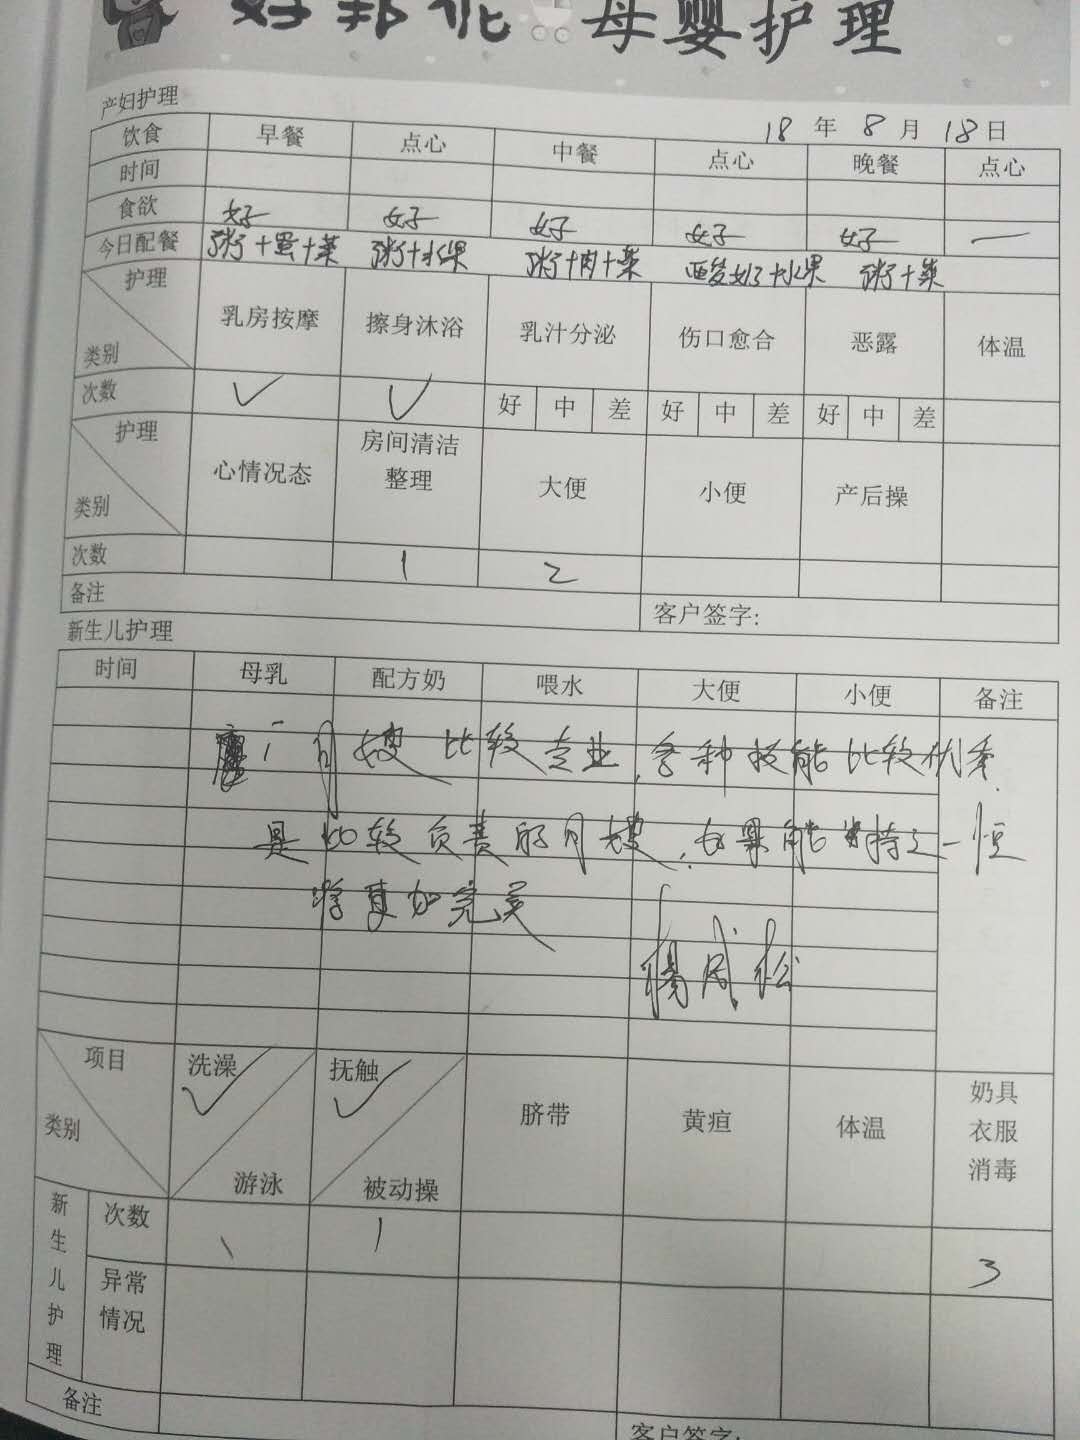 母婴护理
产妇护理
18年8月18日
饮食 早餐 点心 中餐 点心 晚餐 点心
时间
食欲 好 好 好 好 好 一
今日配餐 粥+蛋+菜 粥+水果 粥+肉+菜 酸奶+水果 粥+菜
护理 类别 乳房按摩 擦身沐浴 乳汁分泌 伤口愈合 恶露 体温
次数 ✓ ✓ 好 中 差 好 中 差 好 中 差
护理 类别 心情况态 房间清洁整理 大便 小便 产后操
次数 1 2
备注 客户签字:
新生儿护理
时间 母乳 配方奶 喂水 大便 小便 备注
月嫂比较专业,各种技能比较优秀.
是比较负责的月嫂,如果能持之一恒
将更加完美
杨成松
项目 类别 洗澡 ✓ 游泳 抚触 ✓ 被动操 脐带 黄疸 体温 奶具衣服消毒
新生儿护理 次数 1 1 3
异常情况
备注 客户签字: